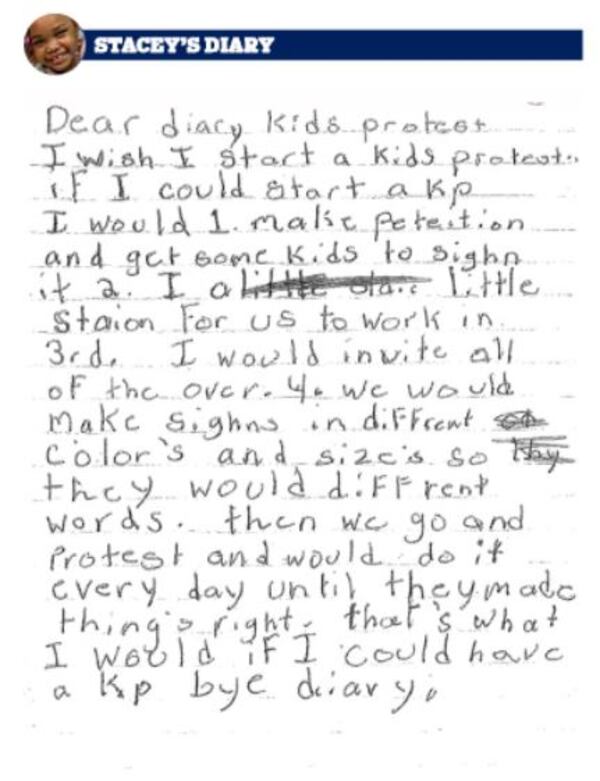 STACEY'S DIARY
Dear diacy Kids protest
I wish I start a Kids protest.
if I could start a Kp
I would 1. make peteition
and get some kids to sighn
it 2. I a little
staion for us to work in
3rd. I would invite all
of the over. 4. we would
make sighns in diffrent
color's and size's so
they would diffrent
words. then we go and
protest and would do it
every day until they made
thing's right. that's what
I would if I could have
a Kp bye diary.